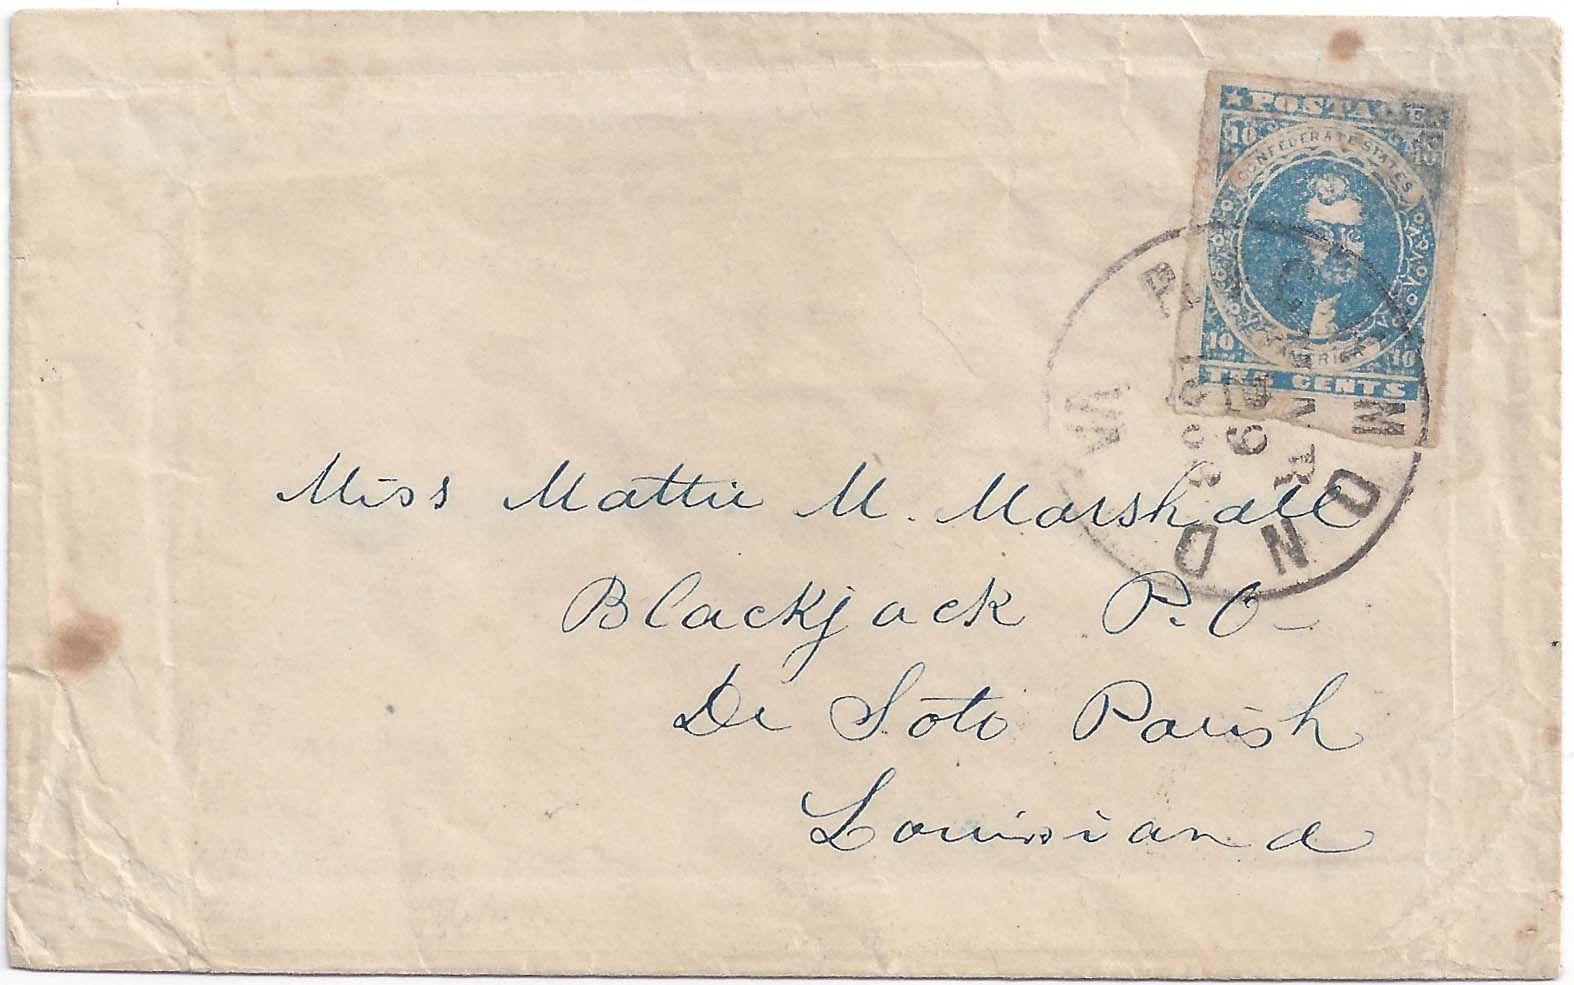 ★ POSTAGE ★
10 10
CONFEDERATE STATES
OF AMERICA
10 10
TEN CENTS
RICHMOND VA.
Miss Mattie M. Marshall
Blackjack P.O-
De Soto Parish
Louisiana